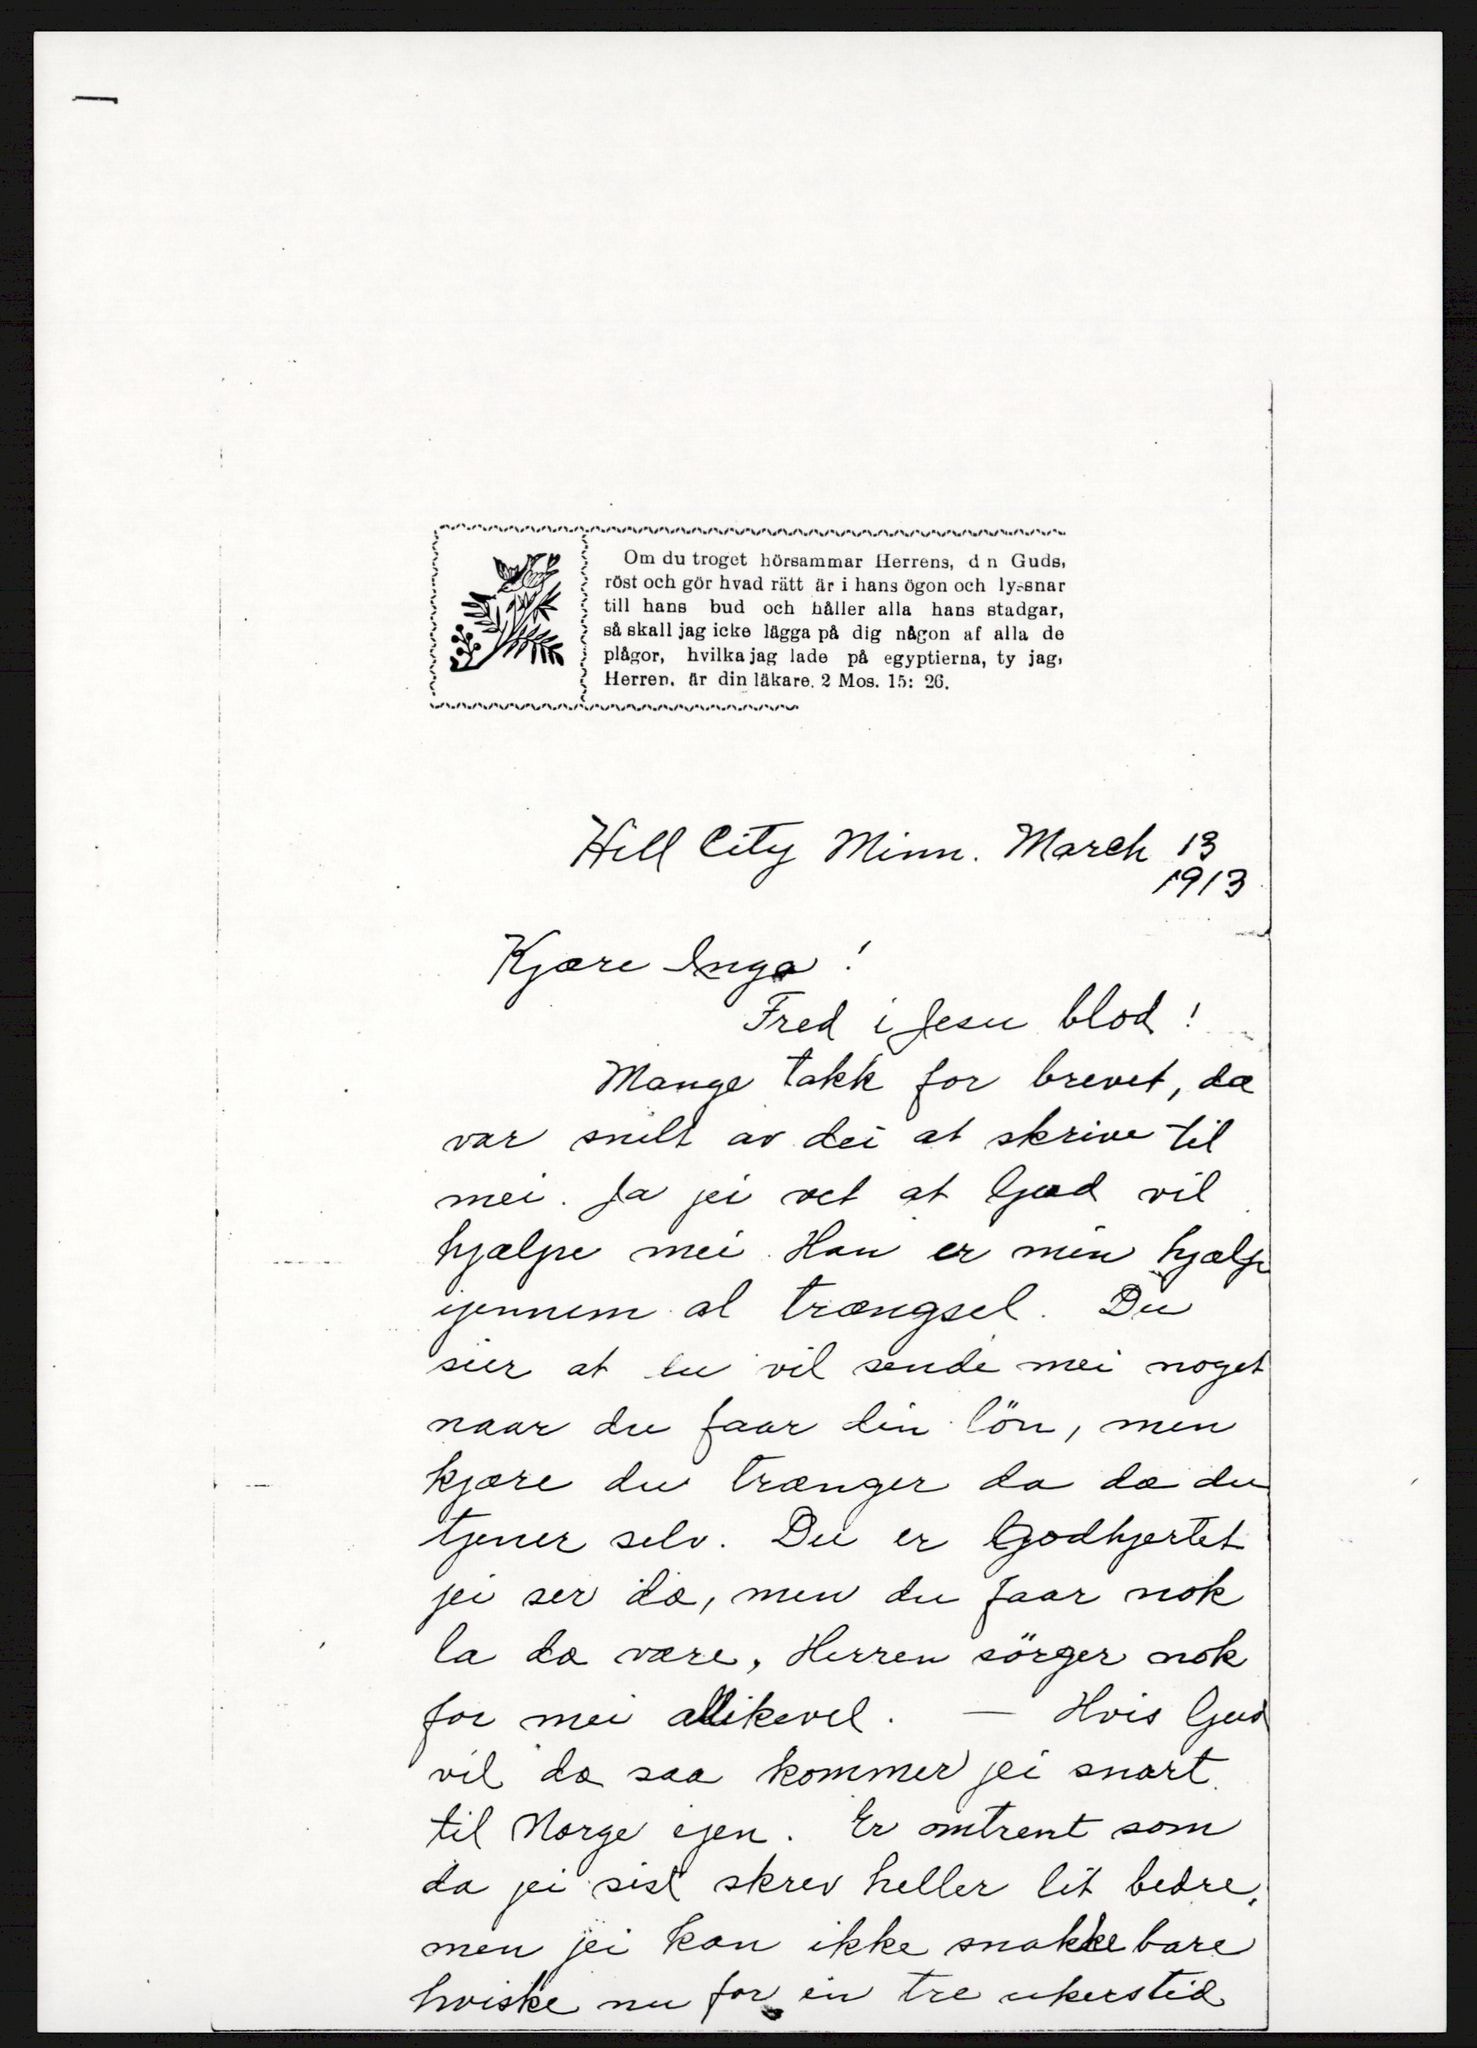 Om du troget hörsammar Herrens, d n Guds,
röst och gör hvad rätt är i hans ögon och lyssnar
till hans bud och håller alla hans stadgar,
så skall jag icke lägga på dig någon af alla de
plågor, hvilka jag lade på egyptierna, ty jag,
Herren, är din läkare. 2 Mos. 15: 26.
Hill City Minn. March 13
1913
Kjære Inga!
Fred i Jesu blod!
Mange takk for brevet, dæ
var snilt av dei at skrive til
mei. Ja jei vet at Gud vil
hjælpe mei. Han er min hjælp
ijennem al trængsel. Du
sier at du vil sende mei noget
naar du faar din lön, men
kjære du trænger da dæ du
tjener selv. Du er Godhjertet
jei ser dæ, men du faar nok
la dæ være, Herren sörger nok
for mei allikevel. — Hvis Gud
vil dæ saa kommer jei snart
til Norge ijen. Er omtrent som
da jei sist skrev heller lit bedre,
men jei kan ikke snakke bare
hviske nu for en tre ukerstid